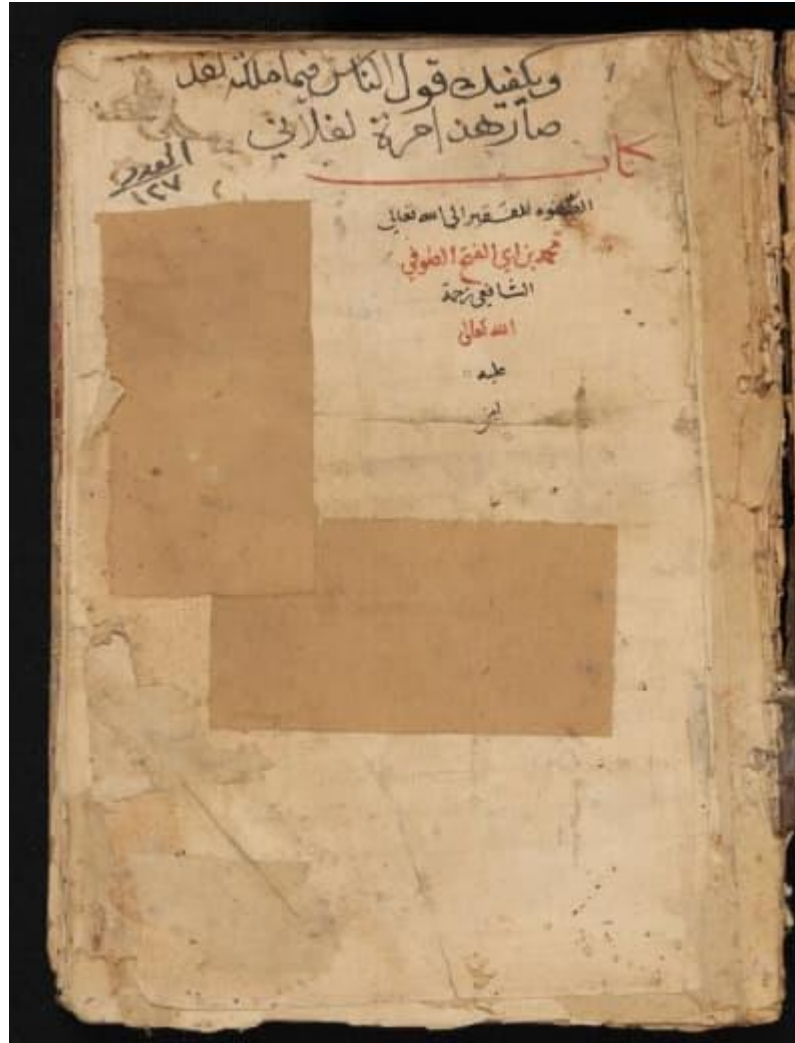 ويكفيك قول الناس فيما ملكته لقد
صار هذا مرة لفلاني
كتاب
العدد
١٢٧
الصفوه للفقير الى الله تعالى
محمد بن ابي الفتح الصوفي
الشافعي رحمة
الله تعالى
عليه